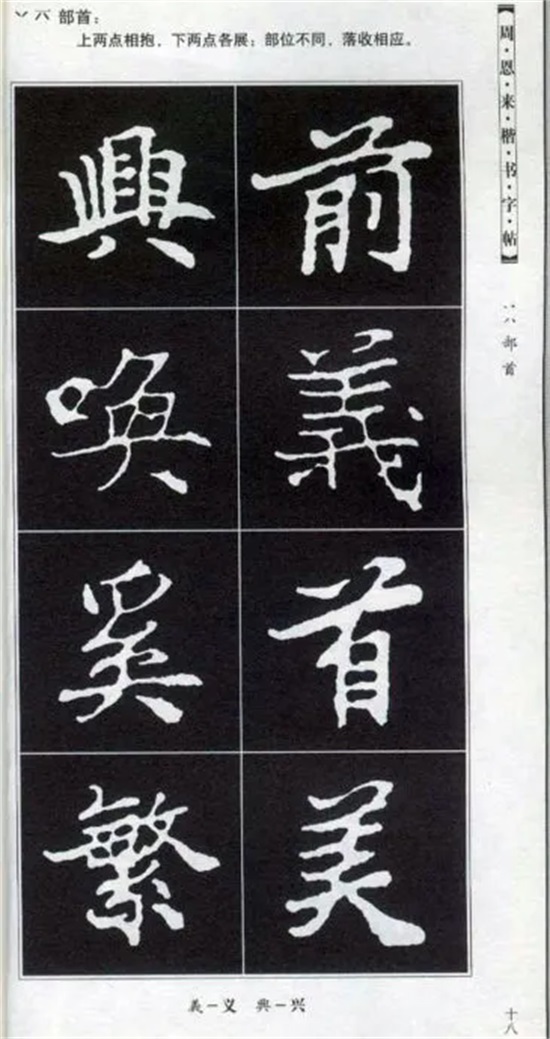 丷 八 部首:
上两点相抱，下两点各展；部位不同，落收相应。
【周·恩·来·楷·书·字·帖】
丷 八 部首
前
義
首
美
興
喚
奚
繁
義—义 興—兴
十八